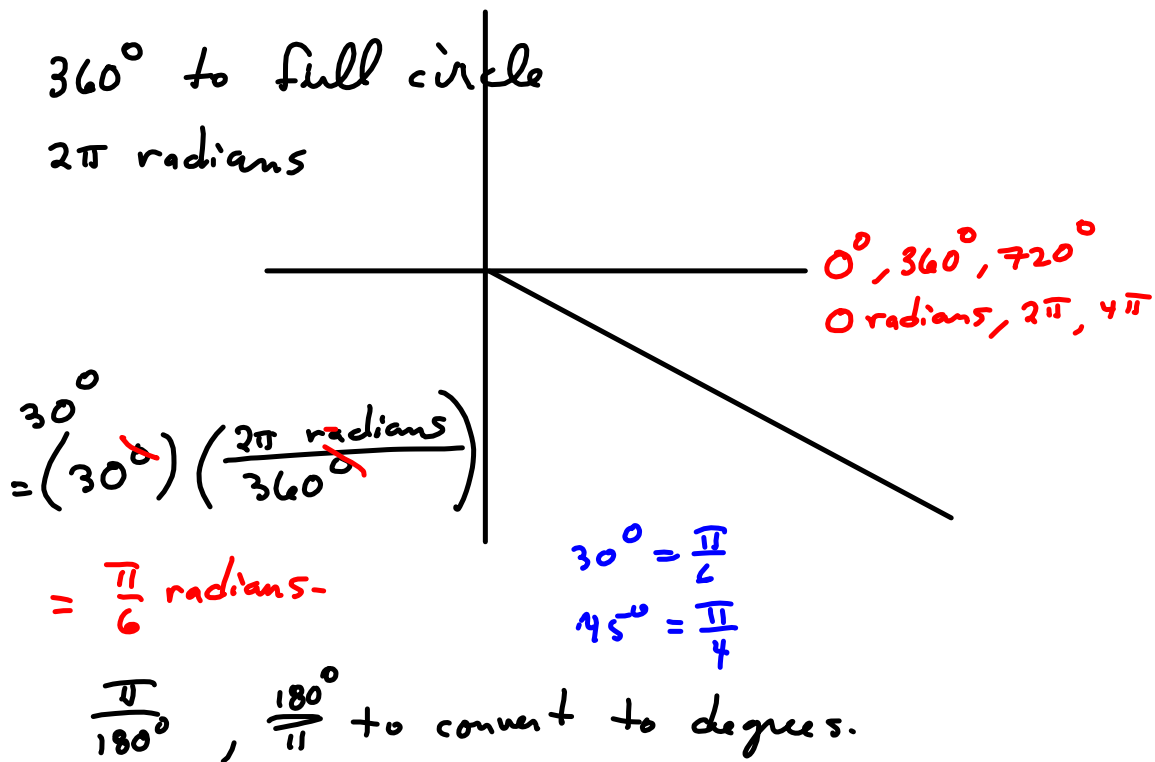 360° to full circle
2π radians
0°, 360°, 720°
0 radians, 2π, 4π
30°
= (30°) (2π radians / 360°)
= π/6 radians.
30° = π/6
45° = π/4
π/180°, 180°/π to convert to degrees.